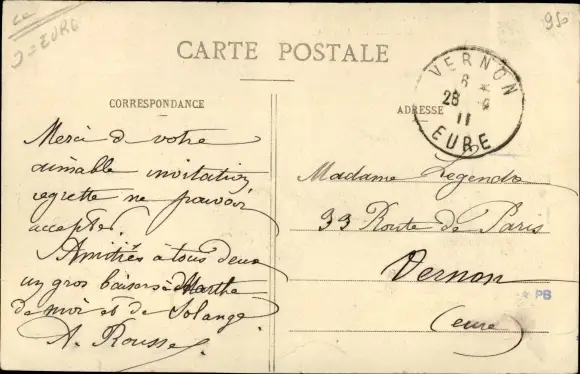 2=EURE
950
CARTE POSTALE
CORRESPONDANCE
ADRESSE
VERNON
6 *
28 - 9
11
EURE
Merci de votre
aimable invitation,
regrette ne pouvoir
accepter.
Amitiés à tous deux
un gros baiser à Marthe
de moi et de Solange.
A. Rousse
Madame Legendre
33 Route de Paris
Vernon
PB
(eure)